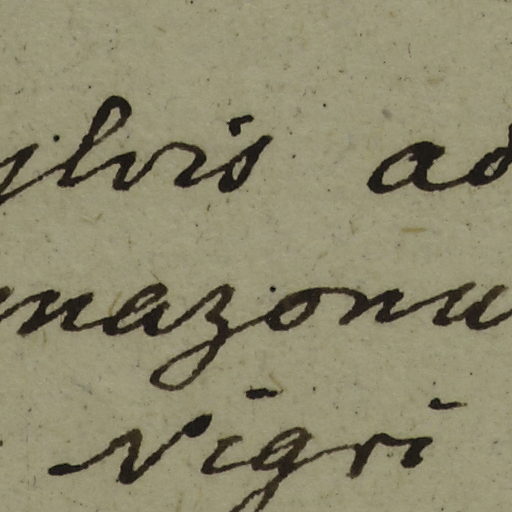 ylvis ad
mazonu
Nigri